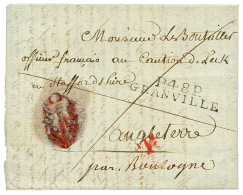 Monsieur Le Boutiller
officier francais au Caution de Leek
en Staffordshire
P.48.P.
GRANVILLE
angleterre
par Boulogne